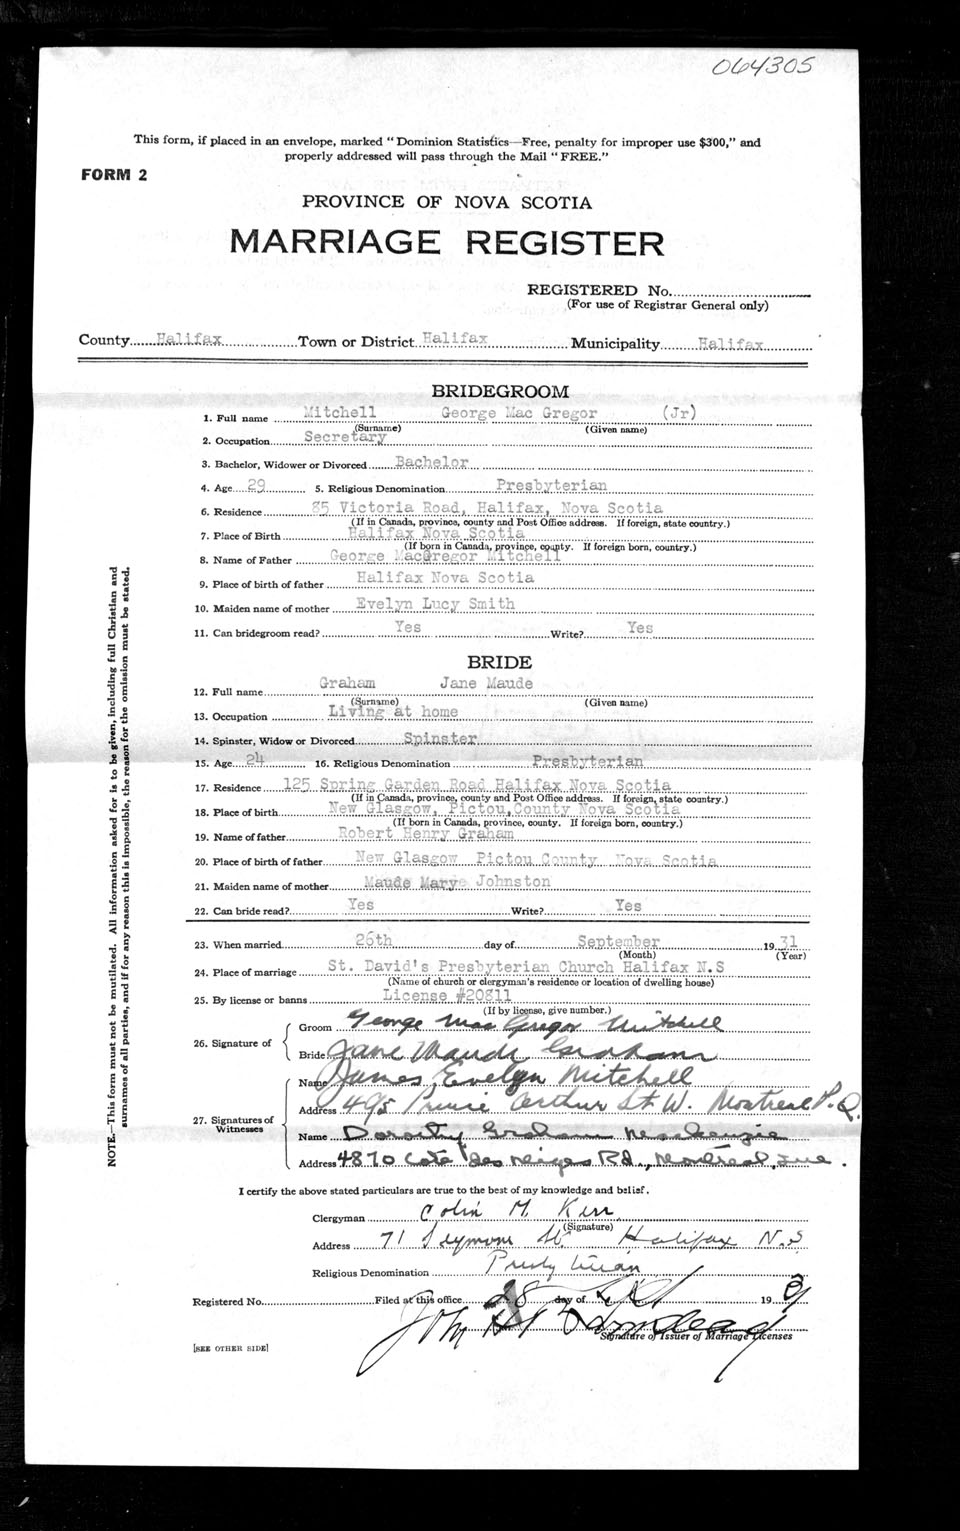 064305
This form, if placed in an envelope, marked "Dominion Statistics—Free, penalty for improper use $300," and
properly addressed will pass through the Mail "FREE."
FORM 2
PROVINCE OF NOVA SCOTIA
MARRIAGE REGISTER
REGISTERED No.
(For use of Registrar General only)
County Halifax Town or District Halifax Municipality Halifax
BRIDEGROOM
1. Full name Mitchell George Mac Gregor (Jr)
(Surname) (Given name)
2. Occupation Secretary
3. Bachelor, Widower or Divorced Bachelor
4. Age 29 5. Religious Denomination Presbyterian
6. Residence 85 Victoria Road, Halifax, Nova Scotia
(If in Canada, province, county and Post Office address. If foreign, state country.)
7. Place of Birth Halifax Nova Scotia
(If born in Canada, province, county. If foreign born, country.)
8. Name of Father George MacGregor Mitchell
9. Place of birth of father Halifax Nova Scotia
10. Maiden name of mother Evelyn Lucy Smith
11. Can bridegroom read? Yes Write? Yes
BRIDE
12. Full name Graham Jane Maude
(Surname) (Given name)
13. Occupation Living at home
14. Spinster, Widow or Divorced Spinster
15. Age 24 16. Religious Denomination Presbyterian
17. Residence 125 Spring Garden Road Halifax Nova Scotia
(If in Canada, province, county and Post Office address. If foreign, state country.)
18. Place of birth New Glasgow, Pictou, County Nova Scotia
(If born in Canada, province, county. If foreign born, country.)
19. Name of father Robert Henry Graham
20. Place of birth of father New Glasgow Pictou County Nova Scotia
21. Maiden name of mother Maude Mary Johnston
22. Can bride read? Yes Write? Yes
23. When married 26th day of September 1931
(Month) (Year)
24. Place of marriage St. David's Presbyterian Church Halifax N.S
(Name of church or clergyman's residence or location of dwelling house)
25. By license or banns License #20811
(If by license, give number.)
26. Signature of
Groom George Mac Gregor Mitchell
Bride Jane Maude Graham
27. Signatures of Witnesses
Name James Evelyn Mitchell
Address 495 Prince Arthur St W. Montreal P.Q.
Name Dorothy Graham Mackenzie
Address 4870 Cote des Neiges Rd., Montreal, Que.
I certify the above stated particulars are true to the best of my knowledge and belief.
Clergyman Colin M. Kerr
(Signature)
Address 71 Seymour St Halifax N.S
Religious Denomination Presbyterian
Registered No. Filed at this office 28 day of 19
John
Signature of Issuer of Marriage Licenses
[SEE OTHER SIDE]
NOTE.—This form must not be mutilated. All information asked for is to be given, including full Christian and
surnames of all parties, and if for any reason this is impossible, the reason for the omission must be stated.